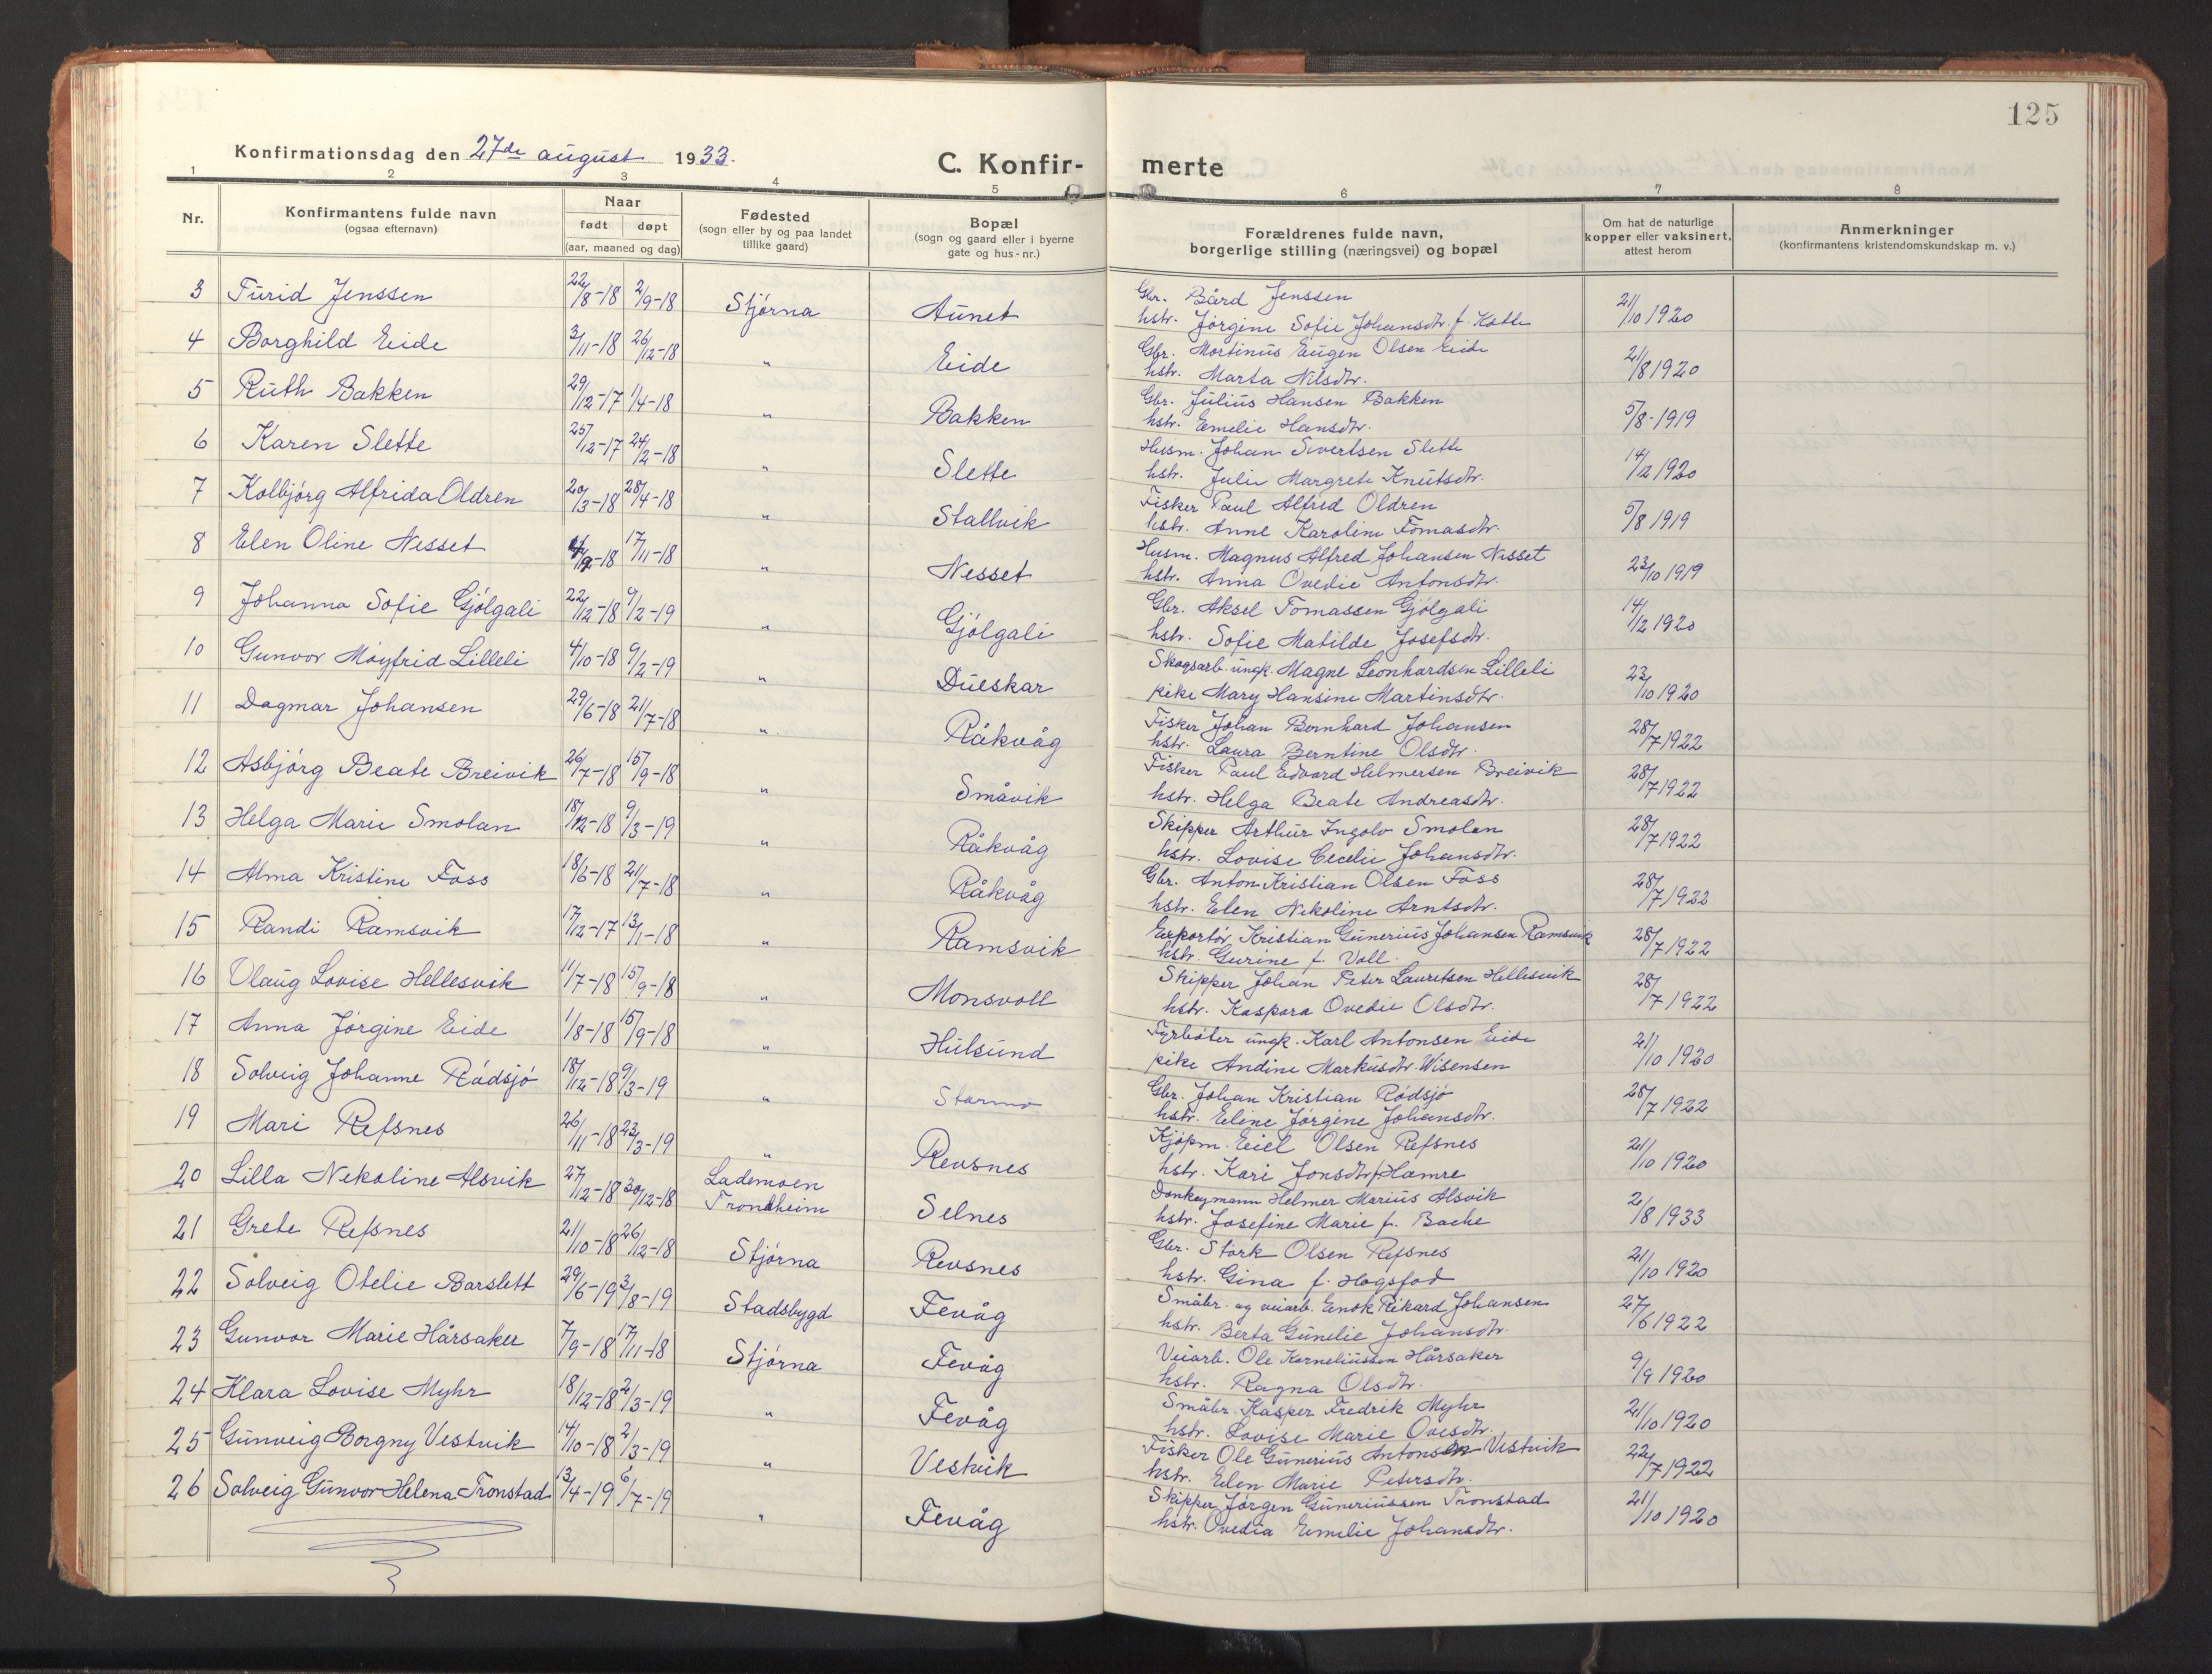 125
Konfirmationsdag den 27de august 1933.
C. Konfirmerte
1 2 3 4 5 6 7 8
Nr.
Konfirmantens fulde navn
(ogsaa efternavn)
Naar
født døpt
(aar, maaned og dag)
Fødested
(sogn eller by og paa landet
tillike gaard)
Bopæl
(sogn og gaard eller i byerne
gate og hus-nr.)
Forældrenes fulde navn,
borgerlige stilling (næringsvei) og bopæl
Om hat de naturlige
kopper eller vaksinert,
attest herom
Anmerkninger
(konfirmantens kristendomskundskap m. v.)
3 Turid Jenssen 22/8-18 2/9-18 Stjørna Aunet Gbr. Bård Jenssen 21/10 1920
hstr. Jørgine Sofie Johansdtr. f.
4 Borghild Eide 3/11-18 26/12-18 " Eide Gbr. Martinus Eugen Olsen Eide 21/8 1920
hstr. Marta Nilsdtr.
5 Ruth Bakken 29/12-17 1/4-18 " Bakken Gbr. Julius Hansen Bakken 5/8-1919
hstr. Emelie Hansdtr.
6 Karen Slette 25/12-17 24/2-18 " Slette Husm. Johan Sivertsen Slette 14/2 1920
hstr. Julie Margrete Knutsdtr.
7 Kolbjørg Alfrida Oldren 20/3-18 28/4-18 " Stallvik Fisker Paul Alfred Oldren 5/8 1919
hstr. Anne Karoline Tomasdtr.
8 Elen Oline Nesset 17/11-18 " Nesset Husm. Magnus Alfred Johansen Nesset 23/10 1919
hstr. Anna Ovedie Antonsdtr.
9 Johanna Sofie Gjølgali 22/12-18 9/2-19 " Gjølgali Gbr. Aksel Tomassen Gjølgali 14/2 1920
hstr. Sofie Matilde Josefsdtr.
10 Gunvor Møyfrid Lilleli 4/10-18 9/2-19 " Dueskar Skogsarb. ungk. Magne Leonhardsen Lilleli 23/10 1920
pike Mary Hansine Martinsdtr.
11 Dagmar Johansen 29/6-18 21/7-18 " Råkvåg Fisker Johan Bernhard Johansen 28/7 1922
hstr. Laura Berntine Olsdtr.
12 Asbjørg Beate Breivik 26/7-18 15/9-18 " Småvik Fisker Paul Edvard Helmersen Breivik 28/7 1922
hstr. Helga Beate Andreasdtr.
13 Helga Marie Smolan 18/12-18 9/3-19 " Råkvåg Skipper Arthur Ingolv Smolan 28/7 1922
hstr. Lovise Cecelie Johansdtr.
14 Alma Kristine Foss 18/6-18 21/7-18 " Råkvåg Gbr. Anton Kristian Olsen Foss 28/7 1922
hstr. Elen Nekoline Arntsdtr.
15 Randi Ramsvik 17/12-17 13/1-18 " Ramsvik Exportør Kristian Gunerius Johansen Ramsvik 28/7 1922
hstr. Gurine f. Voll.
16 Olaug Lovise Hellesvik 11/7-18 15/9-18 " Monsvoll Skipper Johan Peter Lauretsen Hellesvik 28/7 1922
hstr. Kaspara Ovedie Olsdtr.
17 Anna Jørgine Eide 1/8-18 15/9-18 " Hulsund Fyrbøter ungk. Karl Antonsen Eide 21/10 1920
pike Andine Markusdtr. Wisensen
18 Solveig Johanne Rødsjø 18/12-18 9/3-19 " Starmo Gbr. Johan Kristian Rødsjø 28/7 1922
hstr. Eline Jørgine Johansdtr.
19 Mari Refsnes 26/11-18 23/3-19 " Revsnes Kjøpm. Eiel Olsen Refsnes 21/10 1920
hstr. Kari Jonsdtr. f. Hamre
20 Lilla Nekoline Alsvik 27/12-18 30/12-18 Lademoen Trondheim Selnes Donkeymann Helmer Marius Alsvik 2/8 1933
hstr. Josefine Marie f. Bache
21 Grete Refsnes 21/10-18 26/12-18 Stjørna Revsnes Gbr. Stark Olsen Refsnes 21/10 1920
hstr. Gina f. Hogsfod
22 Solveig Otelie Barslett 29/6-19 3/8-19 Stadsbygd Fevåg Småbr. og veiarb. Enok Rikard Johansen 27/6 1922
hstr. Berta Gunelie Johansdtr.
23 Gunvor Marie Hårsaker 7/9-18 17/11-18 Stjørna Fevåg Veiarb. Ole Korneliussen Hårsaker 9/9 1920
hstr. Ragna Olsdtr.
24 Klara Lovise Myhr 18/12-18 2/3-19 " Fevåg Småbr. Kasper Fredrik Myhr 21/10 1920
hstr. Lovise Marie Ovesdtr.
25 Gunveig Borgny Vestvik 14/10-18 2/3-19 " Vestvik Fisker Ole Gunerius Antonsen Vestvik 22/7 1922
hstr. Elen Marie Petersdtr.
26 Solveig Gunvor Helena Tronstad 13/4-19 6/7-19 " Fevåg Skipper Jørgen Guneriussen Tronstad 21/10 1920
hstr. Ovedia Emelie Johansdtr.